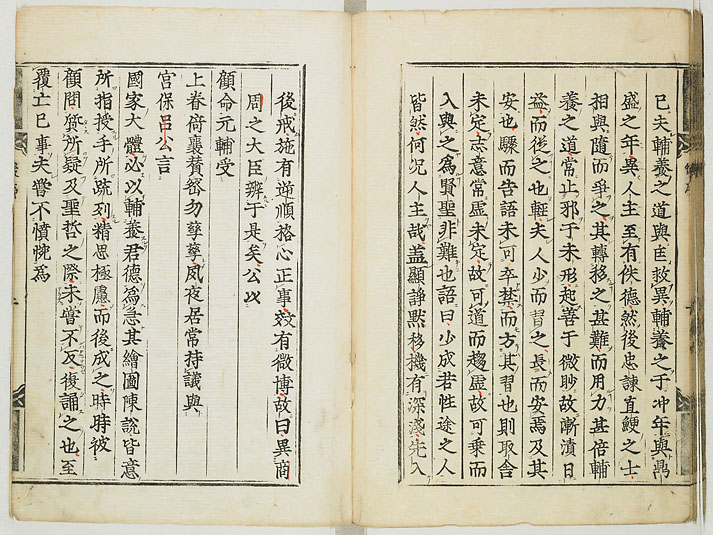 已夫輔養之道與匡救異輔養之于冲年與爲
盛之年異人主至有佚德然後忠諫直鯁之士
相與隨而爭之其轉移之甚難而用力甚倍輔
養之道常止邪于未形起善于微眇故漸漬日
益而後之也輕夫人少而習之長而安焉及其
安也驟而告語未可卒禁而方其習也則取舍
未定志意常虛未定故可道而趨虛故可乗而
入與之爲賢聖非難也語曰少成若性途之人
皆然何况人主哉蓋顯諍黙移機有深淺先入
後戒施有逆順格心正事效有微博故曰異商
周之大臣辨于是矣公以
顧命元輔受
上眷倚襄賛密勿孳孳夙夜居常持議與
宮保呂公言
國家大體必以輔養君德爲急其繪圖陳說皆意
所指授手所疏列精思極慮而後成之時時被
顧問質所疑及聖哲之際未嘗不反復誦之也至
覆亡已事夫嘗不憤惋爲